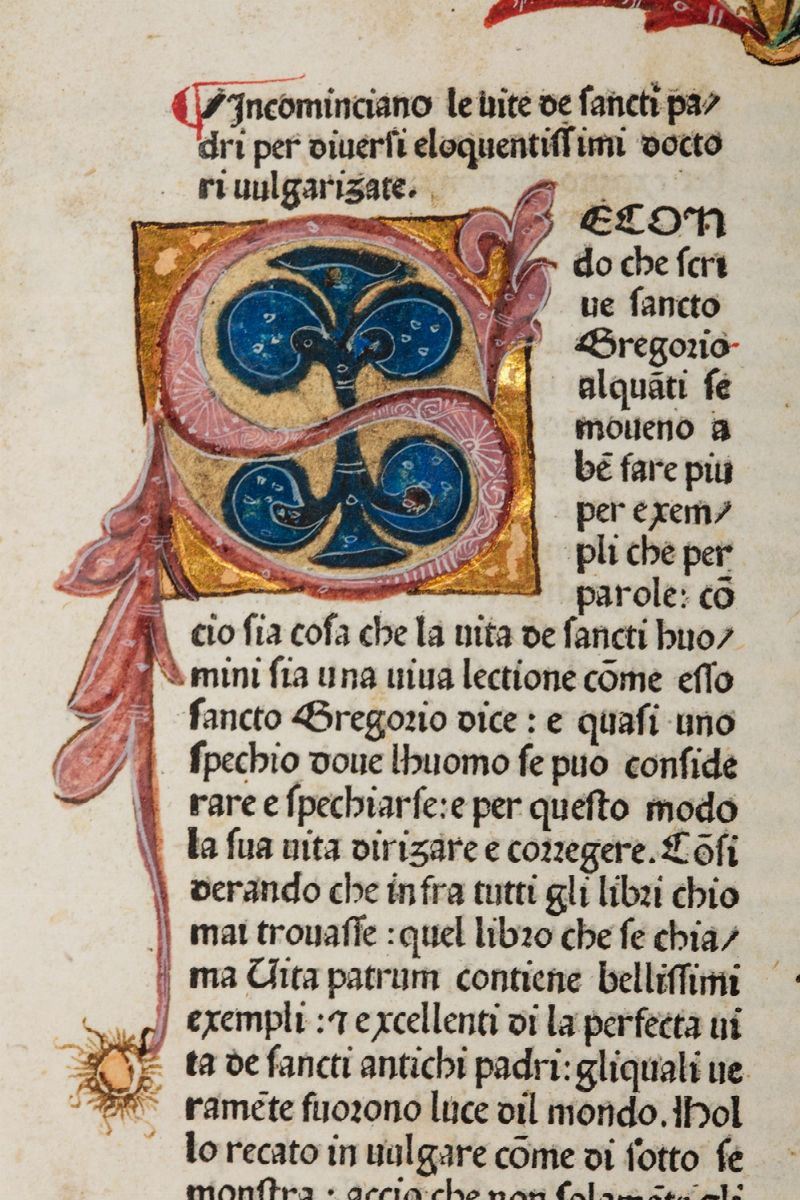 Incominciano le uite de sancti pa/
dri per diuersi eloquentissimi docto
ri uulgarizate.
SECON
do che scri
ue sancto
Gregorio
alquāti se
moueno a
bē fare piu
per exem/
pli che per
parole: cō
cio sia cosa che la uita de sancti huo/
mini sia una uiua lectione cōme esso
sancto Gregorio dice : e quasi uno
spechio doue lhuomo se puo conside
rare e spechiarse: e per questo modo
la sua uita dirizare e corregere. Cōsi
derando che infra tutti gli libri chio
mai trouasse : quel libro che se chia/
ma Uita patrum contiene bellissimi
exempli : ⁊ excellenti di la perfecta ui
ta de sancti antichi padri: gliquali ue
ramēte fuorono luce dil mondo. Hol
lo recato in uulgare cōme di sotto se
monstra : accio che non solamēte gli